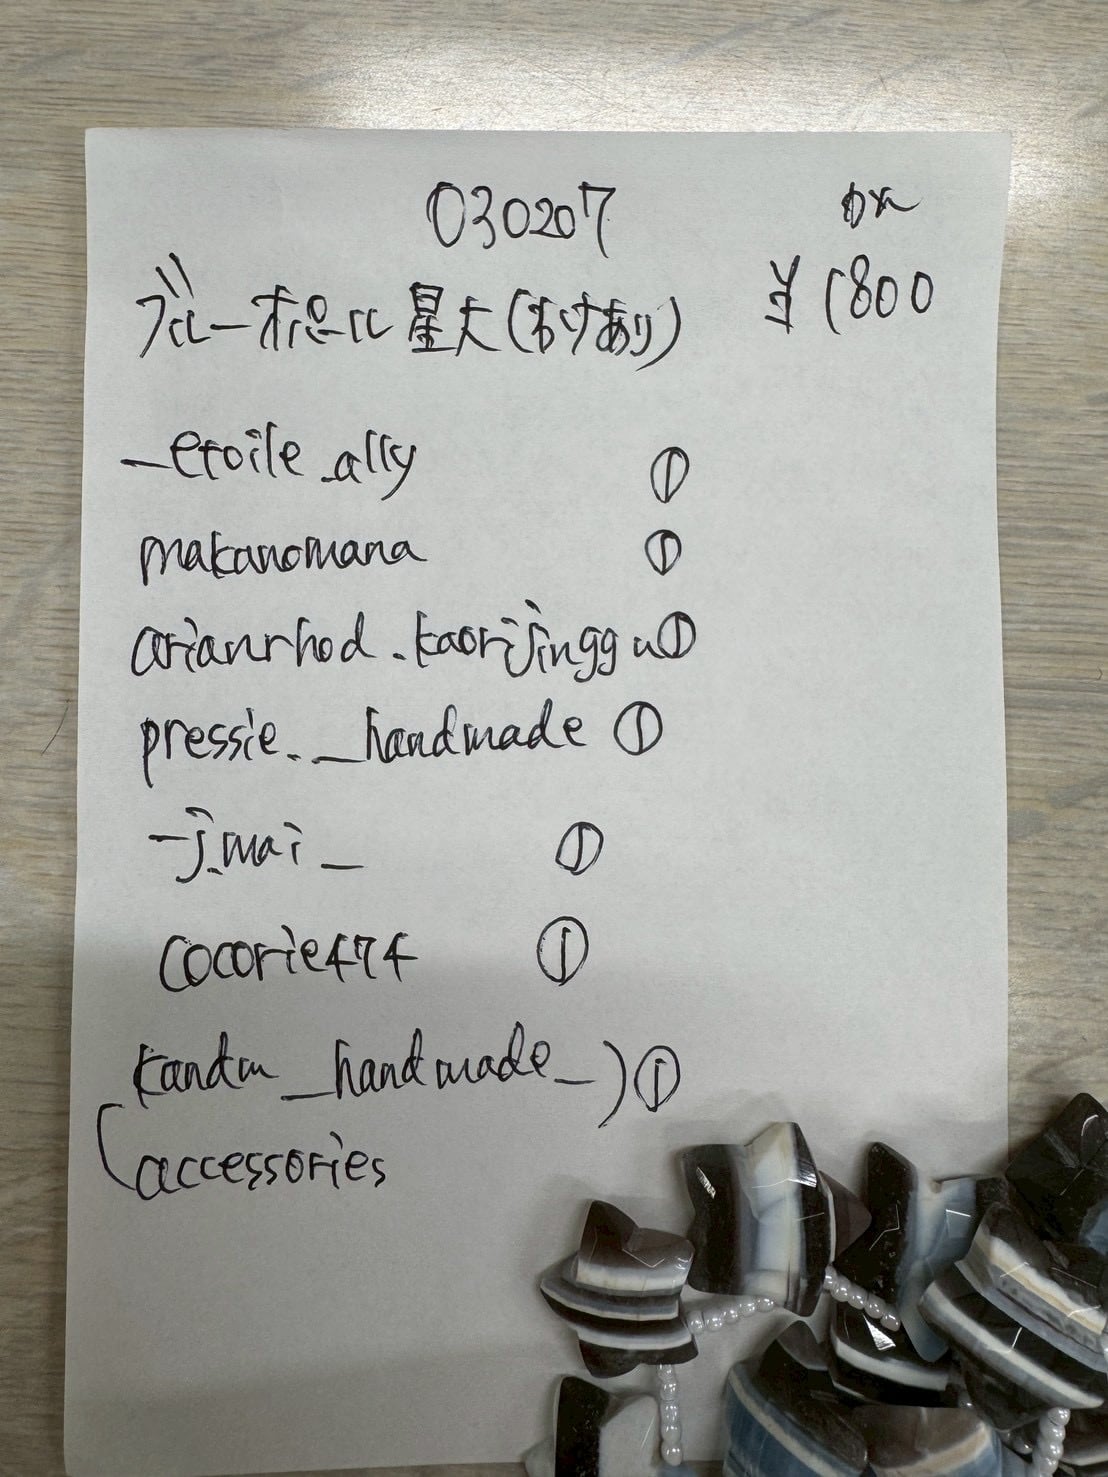 030207
ブルーオパール 星大(わけあり) ¥1800
_etoile_ally ①
makanomana ①
arianrhod.kaorijinggu ①
pressie._handmade ①
_j.mai_ ①
cocorie474 ①
kandm_handmade_) ①
(accessories